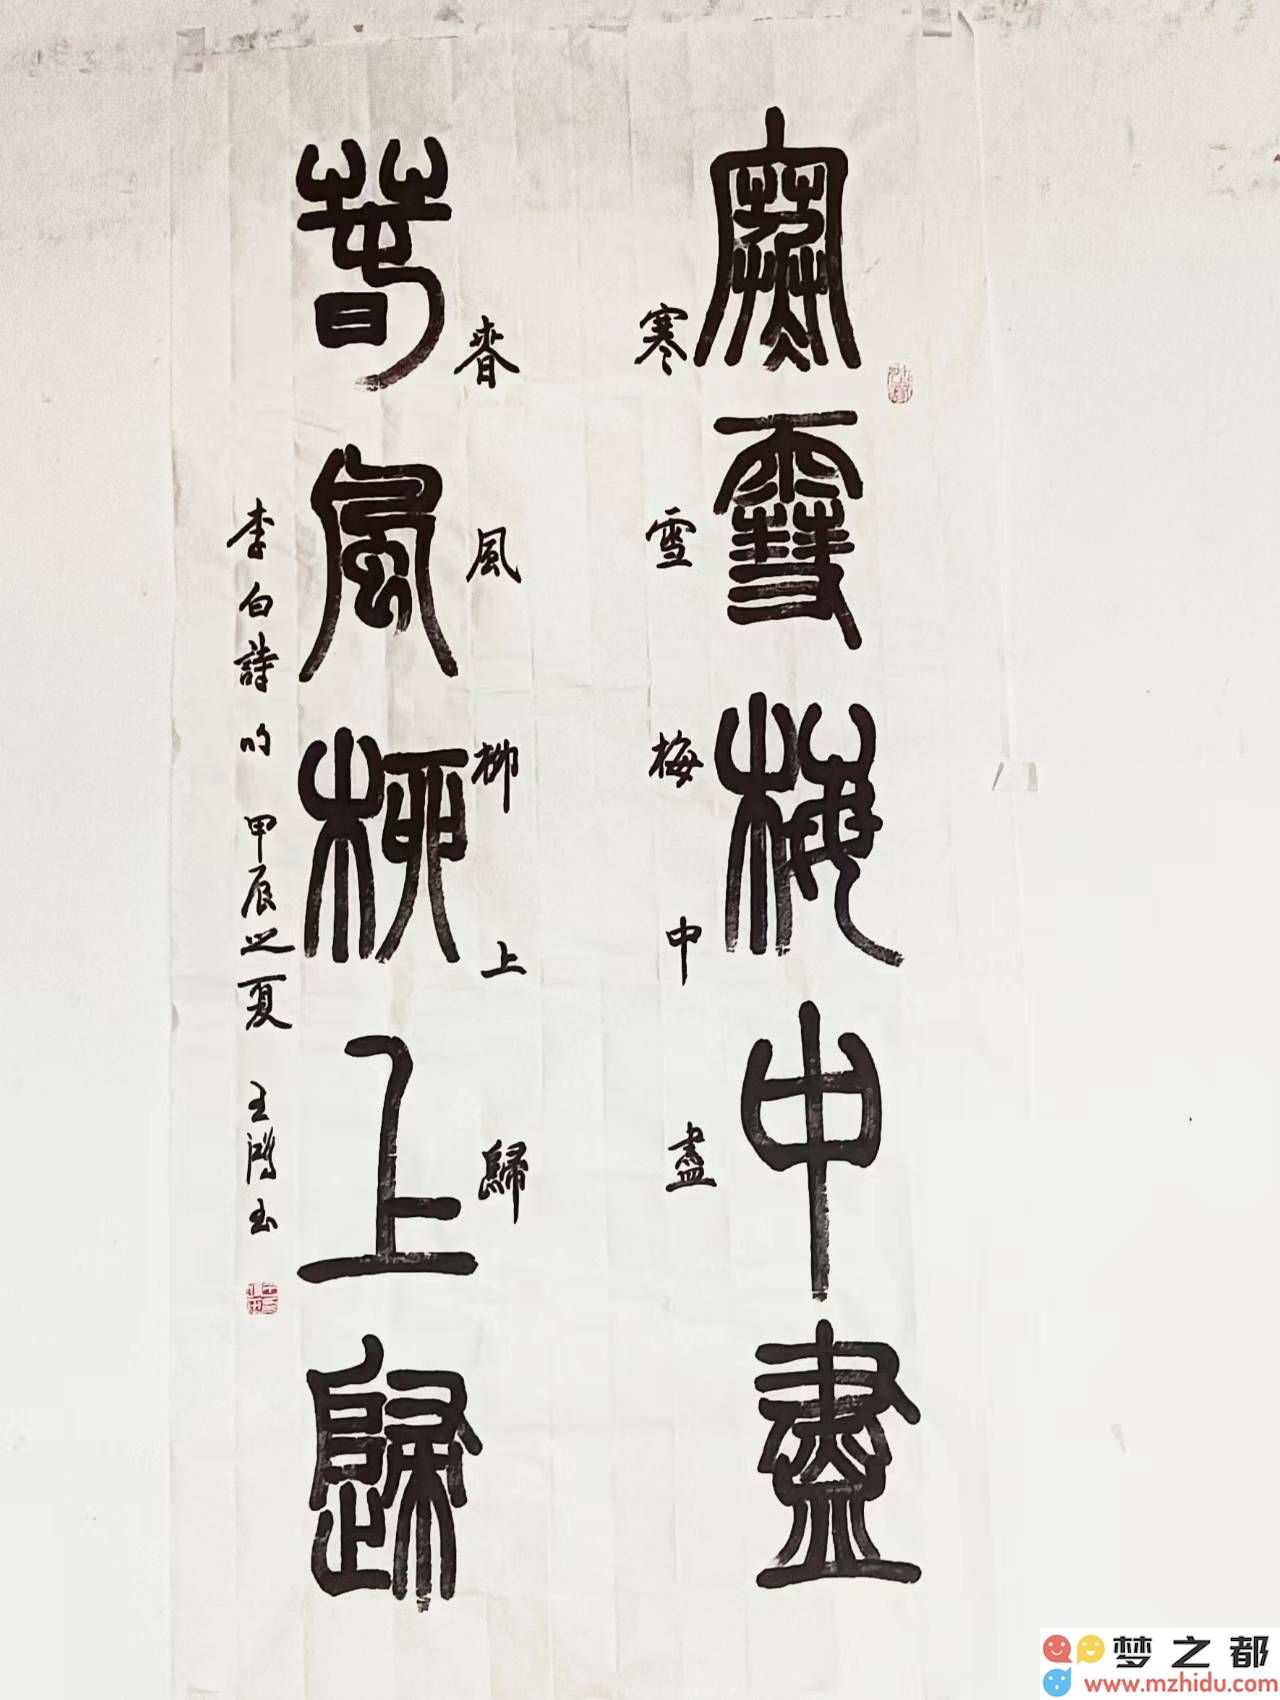 寒雪梅中盡
寒雪梅中盡
春風柳上歸
春風柳上歸
李白詩句 甲辰之夏 王鴻玉
梦之都
www.mzhidu.com